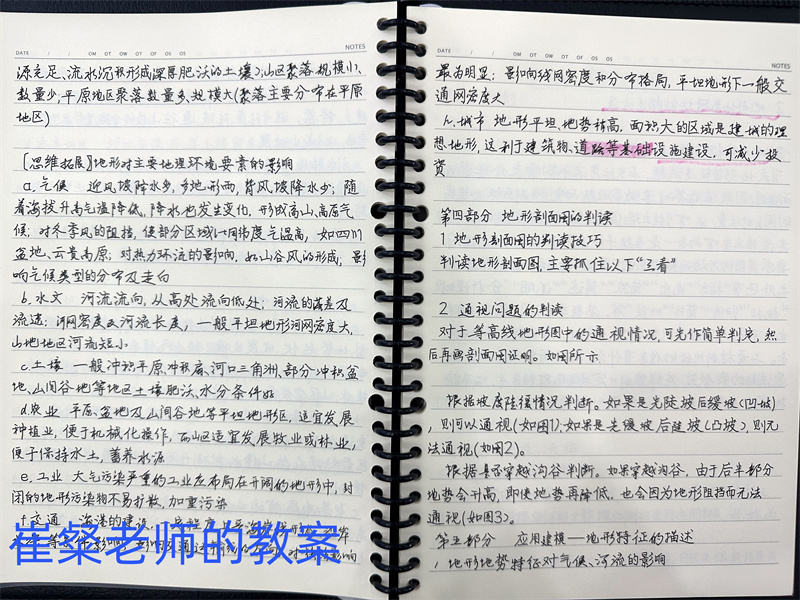 DATE / / OM OT OW OT OF OS OS NOTES
源充足、流水沉积形成深厚肥沃的土壤);山区聚落规模小、
数量少;平原地区聚落数量多、规模大(聚落主要分布在平原
地区)
【思维拓展】地形对主要地理环境要素的影响
a.气候 迎风坡降水多,多地形雨,背风坡降水少;随
着海拔升高气温降低,降水也发生变化,形成高山、高原气
候;对冬季风的阻挡,使部分区域比同纬度气温高,如四川
盆地、云贵高原;对热力环流的影响,如山谷风的形成,影
响气候类型的分布及走向
b.水文 河流流向,从高处流向低处;河流的落差及
流速;河网密度及河流长度,一般平坦地形河网密度大,
山地地区河流短小
c.土壤 一般冲积平原、冲积扇、河口三角洲、部分冲积盆
地、山间谷地等地区土壤肥沃、水分条件好
d.农业 平原、盆地及山间谷地等平坦地形区,适宜发展
种植业,便于机械化操作,而山区适宜发展牧业或林业,
便于保持水土,蓄养水源
e.工业 大气污染严重的工业应布局在开阔的地形中,封
闭的地形污染物不易扩散,加重污染
f.交通 海港的建设
崔粲老师的教案
DATE / / OM OT OW OT OF OS OS NOTES
最为明显;影响线网密度和分布格局,平坦地形下一般交
通网密度大
h.城市 地形平坦、地势稍高,面积大的区域是建城的理
想地形,这利于建筑物、道路等基础设施建设,可减少投
资
第四部分 地形剖面图的判读
1 地形剖面图的判读技巧
判读地形剖面图,主要抓住以下“三看”
2 通视问题的判读
对于等高线地形图中的通视情况,可先作简单判定,然
后再画剖面图证明。如图所示
根据坡度陡缓情况判断。如果是先陡坡后缓坡(凹坡)
,则可以通视(如图1);如果是先缓坡后陡坡(凸坡),则无
法通视(如图2)。
根据是否穿越沟谷判断。如果穿越沟谷,由于后半部分
地势会升高,即使地势再降低,也会因为地形阻挡而无法
通视(如图3)。
第五部分 应用建模—地形特征的描述
1 地形地势特征对气候、河流的影响